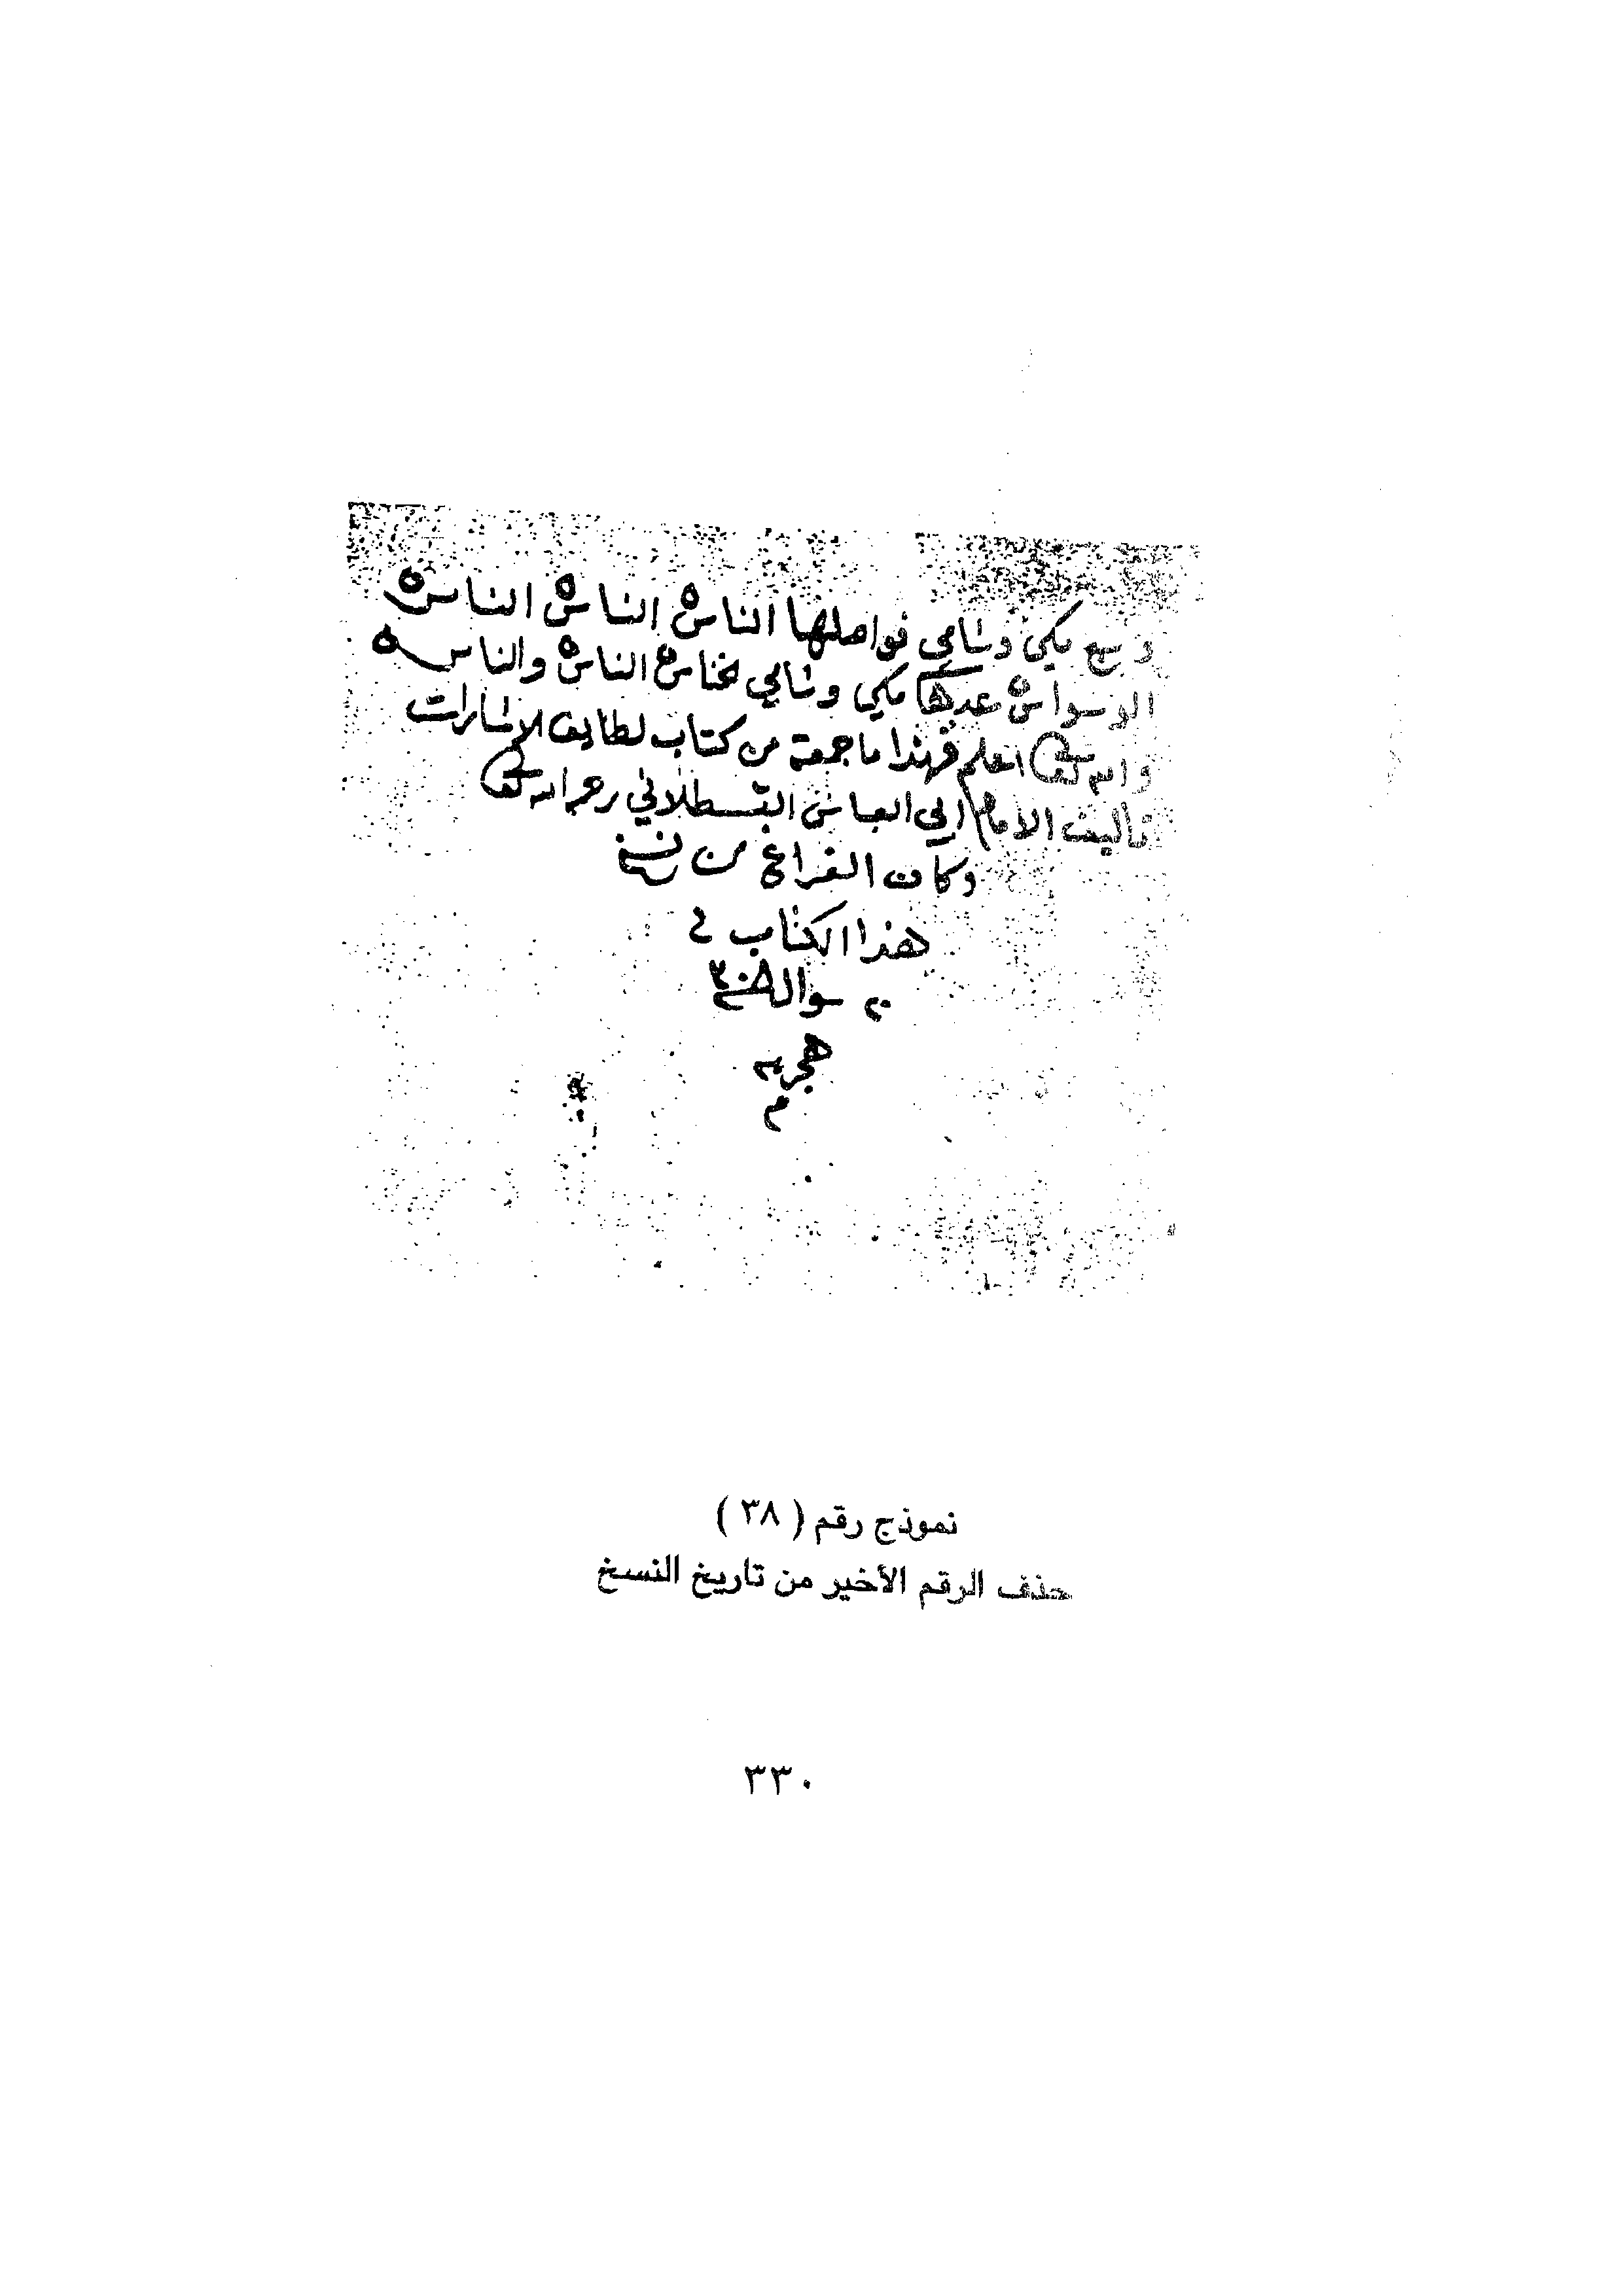 و سبع مكي وشامي فواصلها الناس الناس الناس
الوسواس عدها مكي وشامي لخناس الناس والناس
والله تعالى اعلم فهذا ما جمعته من كتاب لطايف الاشارات
تاليف الامام ابي العباس القسطلاني رحمه الله تعالى
وكان الفراغ من نسخ
هذا الكتاب في
شوال سنة ٣٠٨
هجريه
م
نموذج رقم ( ٣٨ )
حذف الرقم الأخير من تاريخ النسخ
٣٣٠